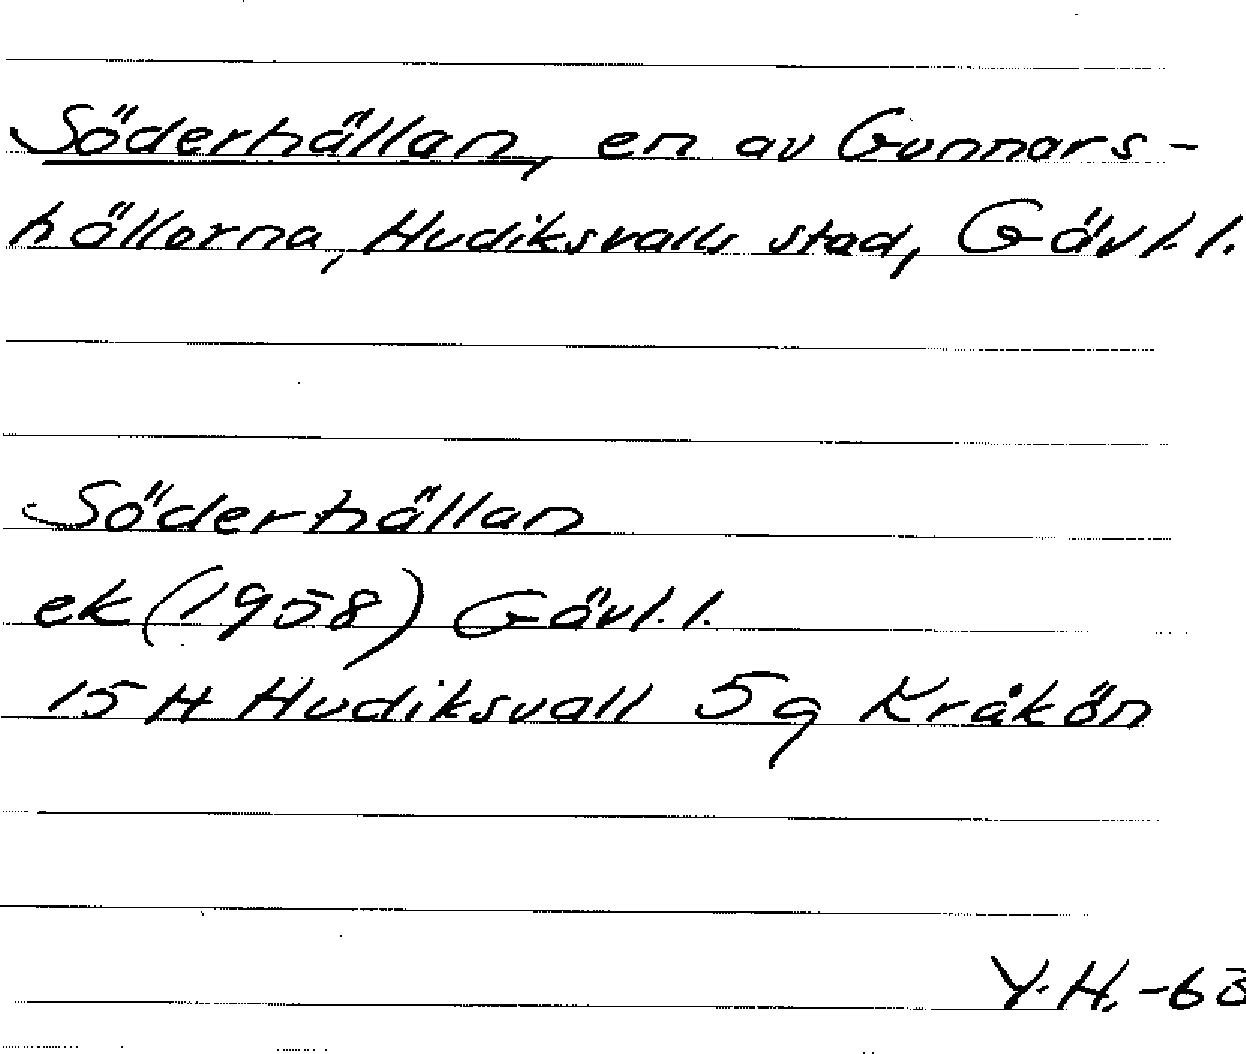 Söderhällan, en av Gunnars-
hällorna, Hudiksvalls stad, Gävl.l.
Söderhällan
ek (1958) Gävl.l.
15 H Hudiksvall 5g Kråkön
Y.H.-63